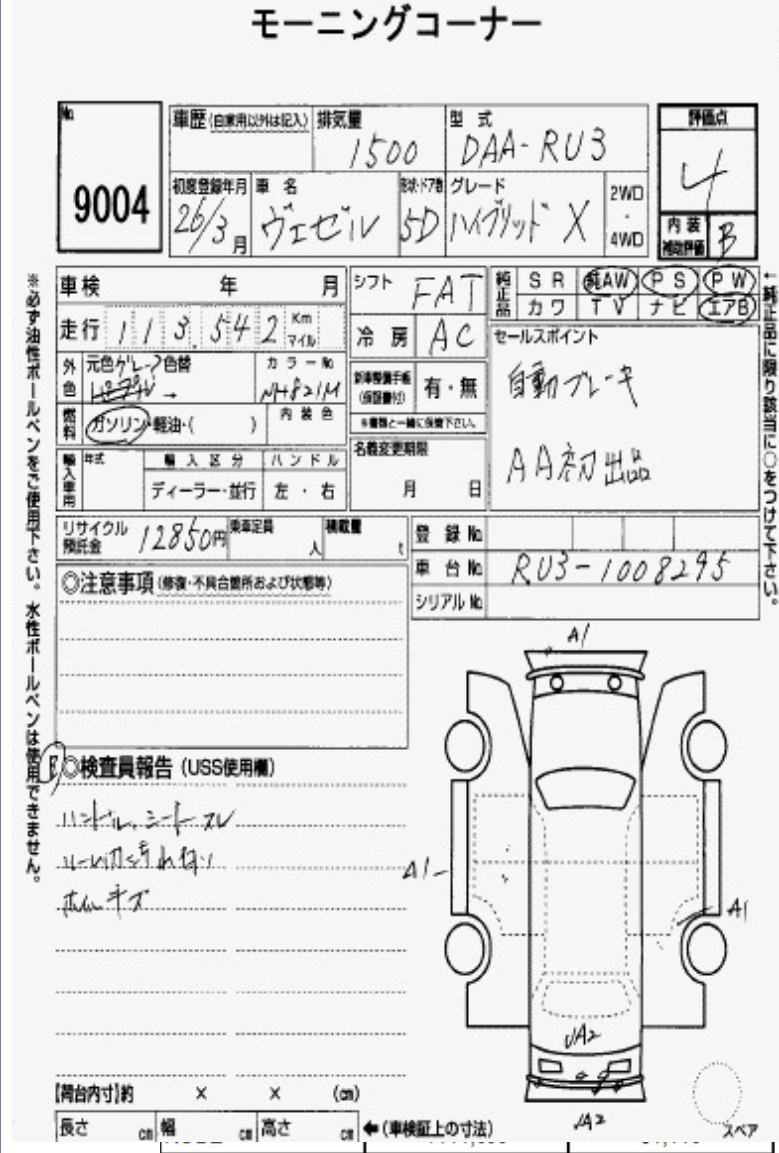 モーニングコーナー
No
9004
車歴(自家用以外は記入)
排気量
1500
型式
DAA-RU3
評価点
4
初度登録年月
26/3月
車名
ヴェゼル
形状・ドア数
5D
グレード
ハイブリッド X
2WD
・
4WD
内装
補助評価
B
車検 年 月
シフト
FAT
純正品
SR 純AW PS PW
カワ TV ナビ エアB
走行 113,542 Km
マイル
冷房
AC
セールスポイント
自動ブレーキ
AA初出品
外色
元色 グレー 色替
→
カラーNo
NH821M
新車整備手帳
(保証書付)
有・無
※書類と一緒に保管下さい。
燃料
ガソリン・軽油・( )
内装色
名義変更期限
月 日
輸入車用
年式
輸入区分
ディーラー・並行
ハンドル
左・右
リサイクル
預託金
12850円
乗車定員
人
積載量
t
登録No
車台No
RU3-1008295
シリアルNo
◎注意事項(修復・不具合箇所および状態等)
◎検査員報告(USS使用欄)
ハンドル、シートスレ
ホイルキズ
A1
A1
A1
UA2
UA2
スペア
【荷台内寸】約 × × (cm)
長さ cm
幅 cm
高さ cm
←(車検証上の寸法)
※必ず油性ボールペンをご使用下さい。水性ボールペンは使用できません。
←純正品に限り該当に○をつけて下さい。